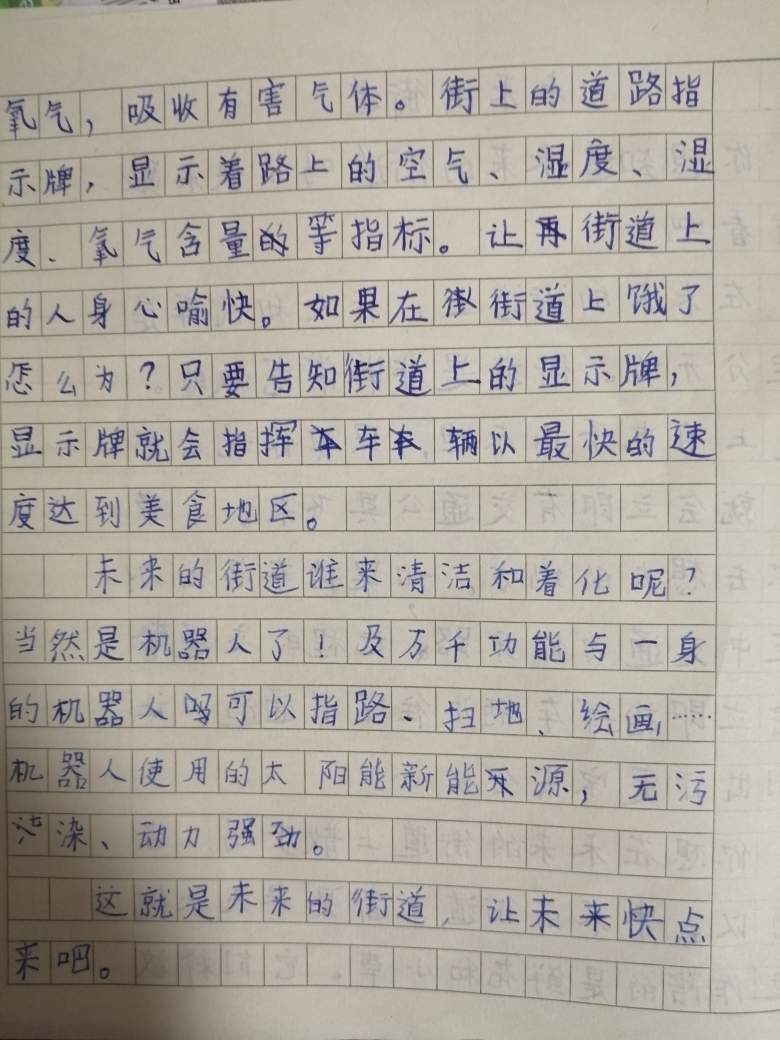 氧气，吸收有害气体。街上的道路指
示牌，显示着路上的空气、湿度、湿
度、氧气含量的等指标。让再街道上
的人身心喻快。如果在街街道上饿了
怎么为？只要告知街道上的显示牌，
显示牌就会指挥车车车辆以最快的速
度达到美食地区。
未来的街道谁来清洁和着化呢？
当然是机器人了！及万千功能与一身
的机器人吗可以指路、扫地、绘画，……
机器人使用的太阳能新能采源，无污
染、动力强劲。
这就是未来的街道，让未来快点
来吧。